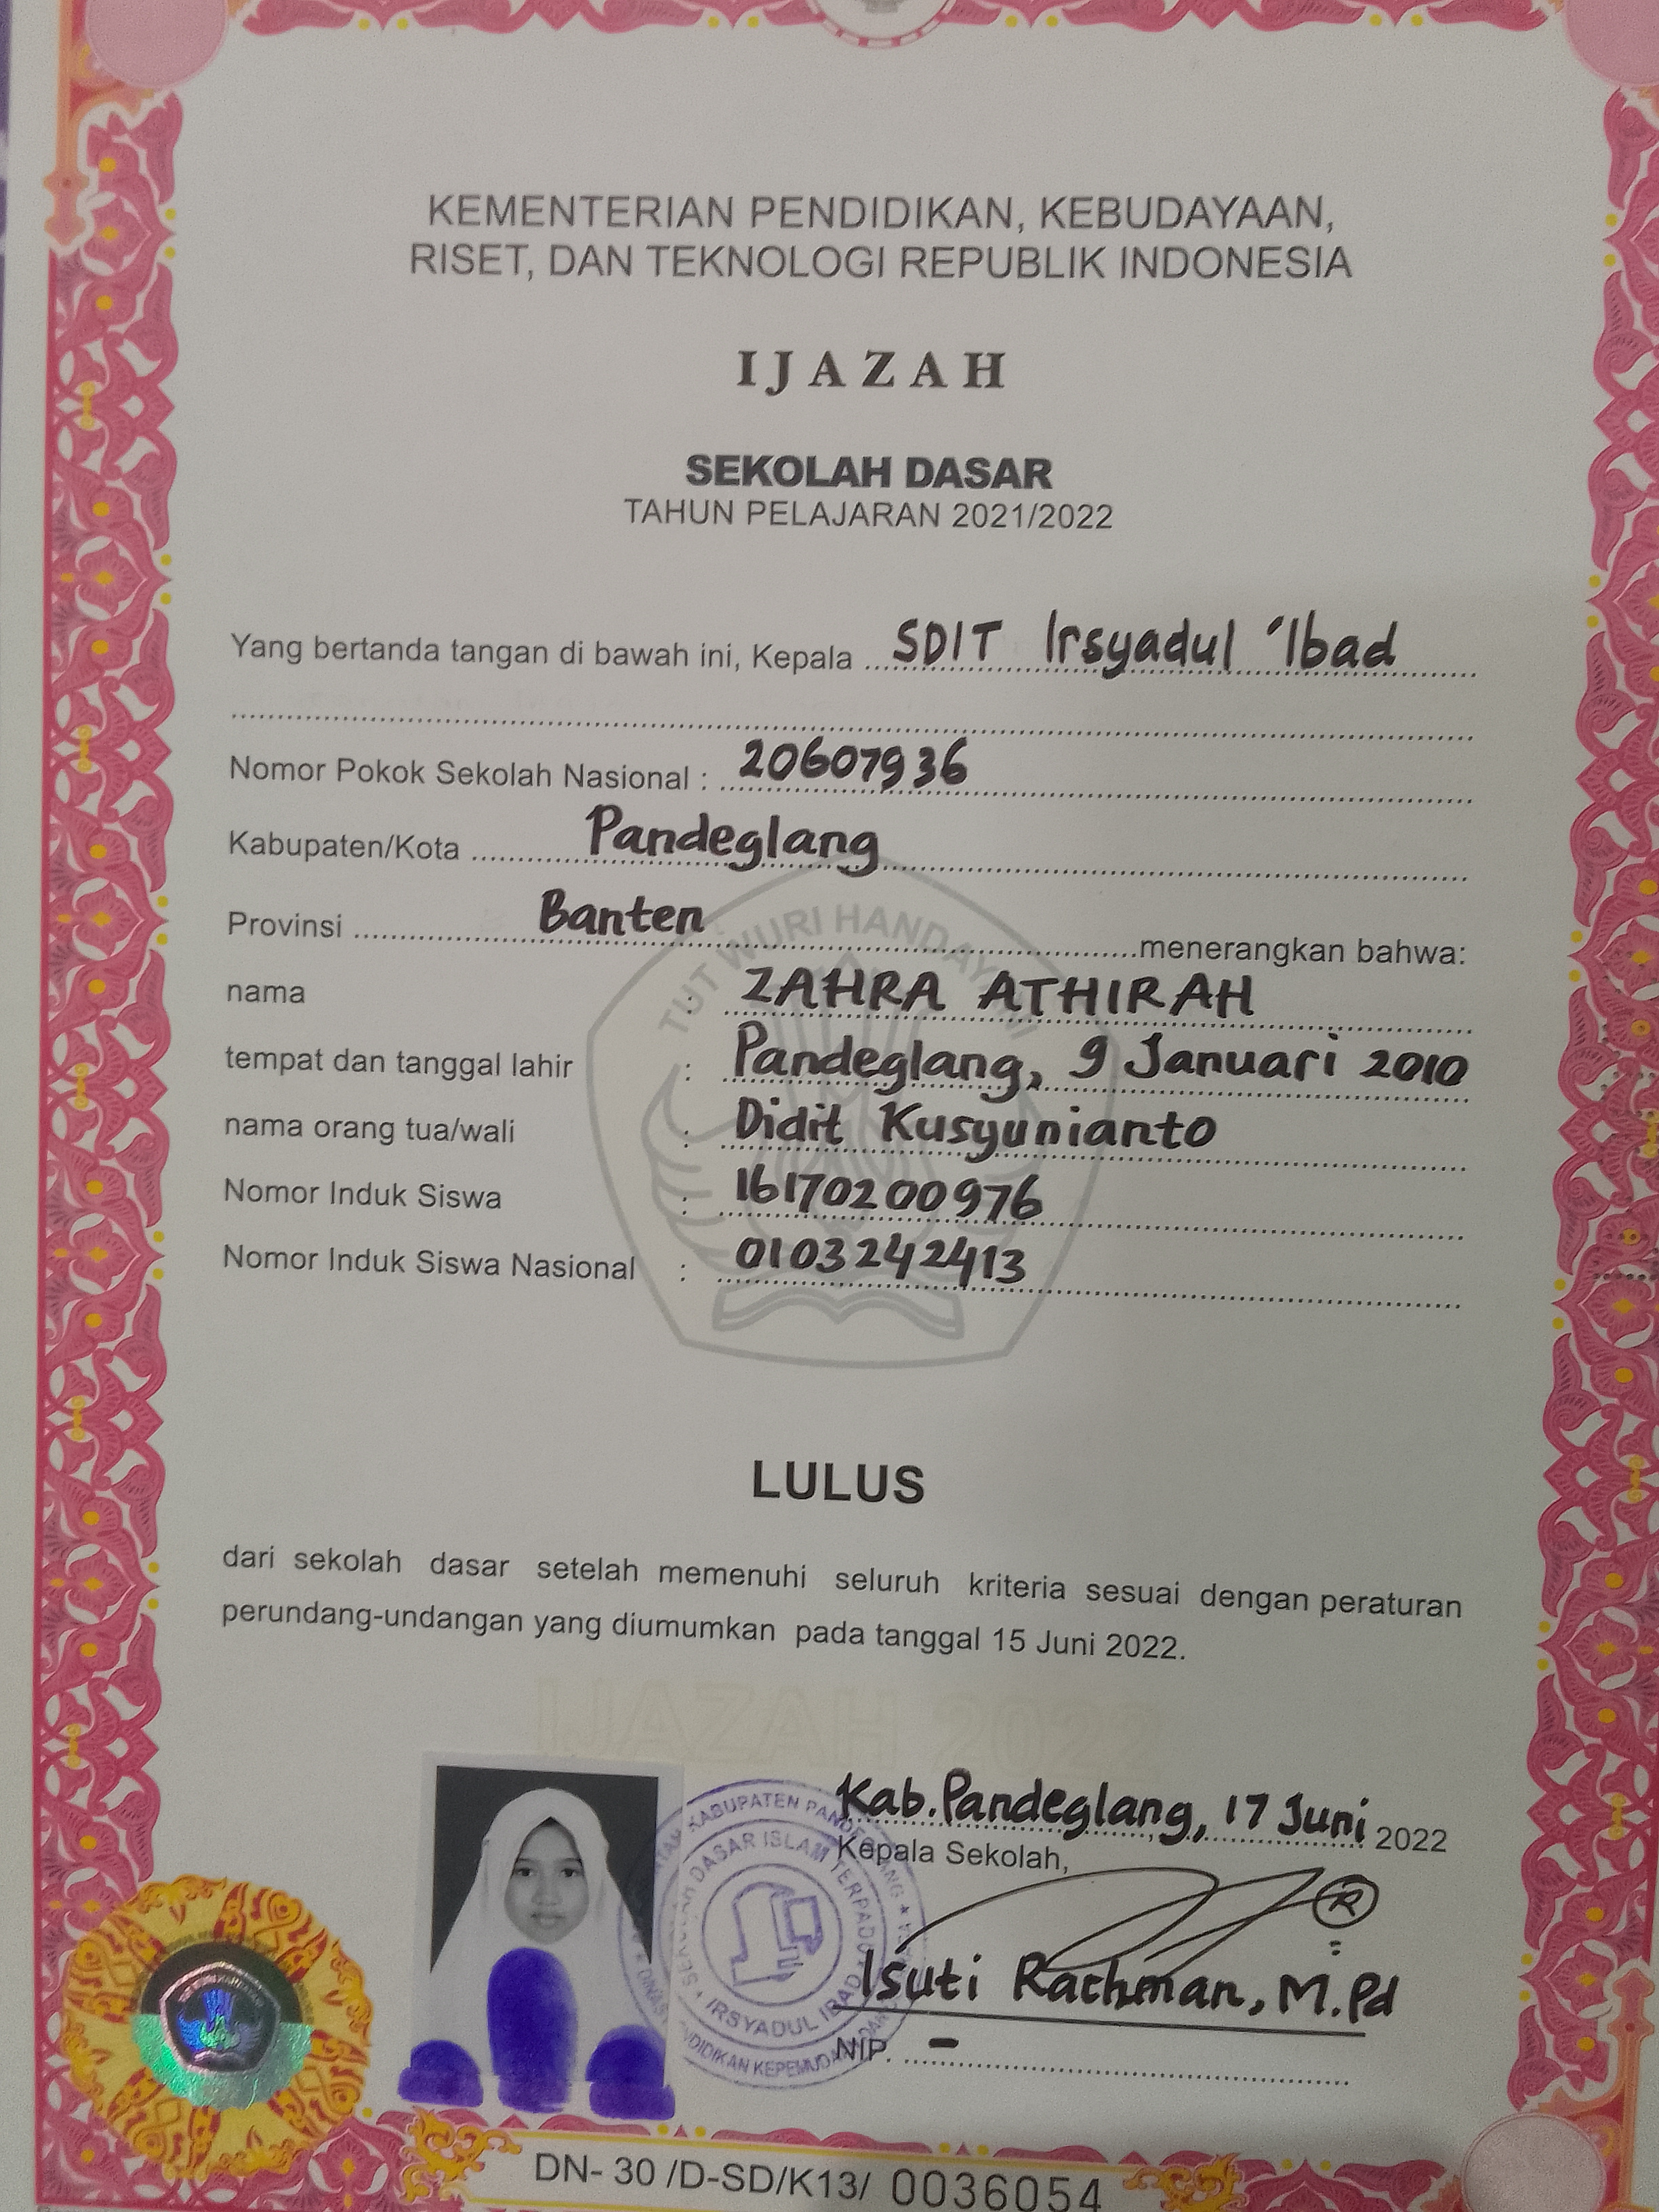 KEMENTERIAN PENDIDIKAN, KEBUDAYAAN,
RISET, DAN TEKNOLOGI REPUBLIK INDONESIA
IJAZAH
SEKOLAH DASAR
TAHUN PELAJARAN 2021/2022
Yang bertanda tangan di bawah ini, Kepala SDIT Irsyadul 'Ibad
Nomor Pokok Sekolah Nasional : 20607936
Kabupaten/Kota Pandeglang
Provinsi Banten menerangkan bahwa:
TUT WURI HANDAYANI
nama : ZAHRA ATHIRAH
tempat dan tanggal lahir : Pandeglang, 9 Januari 2010
nama orang tua/wali : Didit Kusyunianto
Nomor Induk Siswa : 16170200976
Nomor Induk Siswa Nasional : 0103242413
LULUS
dari sekolah dasar setelah memenuhi seluruh kriteria sesuai dengan peraturan
perundang-undangan yang diumumkan pada tanggal 15 Juni 2022.
IJAZAH 2022
Kab. Pandeglang, 17 Juni 2022
Kepala Sekolah,
KABUPATEN
SEKOLAH DASAR ISLAM TERPADU
IRSYADUL IBAD
Isuti Rachman, M.Pd
NIP. -
DN- 30 /D-SD/K13/ 0036054